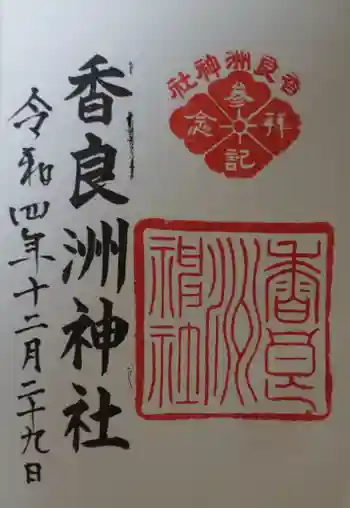 香良洲神社
参拝記念
香良洲神社
香良洲神社
令和四年十二月二十九日